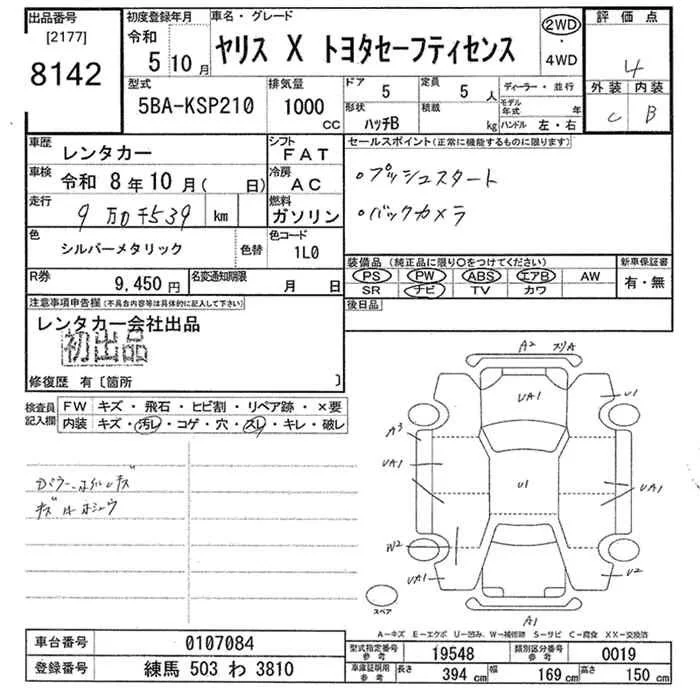 出品番号
[2177]
8142
初度登録年月
令和
5 10 月
車名・グレード
ヤリス X トヨタセーフティセンス
2WD
・
4WD
評価点
4
外装 内装
C B
型式
5BA-KSP210
排気量
1000
CC
ドア
5
定員
5 人
形状
ハッチB
積載
kg
ディーラー・並行
モデル年式 年
ハンドル 左・右
車歴
レンタカー
シフト
FAT
車検
令和 8 年 10 月( 日)
冷房
AC
走行
9 万0千539 km
燃料
ガソリン
色
シルバーメタリック
色替
色コード
1L0
R券
9,450 円
名変通知期限
月 日
セールスポイント(正常に機能するものに限ります)
○プッシュスタート
○バックカメラ
装備品(純正品に限り○をつけてください)
PS PW ABS エアB AW
SR ナビ TV カワ
新車保証書
有・無
後日品
注意事項申告欄(不具合内容等は具体的に記入して下さい)
レンタカー会社出品
初出品
修復歴 有〔箇所 〕
検査員記入欄
FW キズ・飛石・ヒビ割・リペア跡・×要
内装 キズ・汚レ・コゲ・穴・スレ・キレ・破レ
A2 スリA
UA1
U1
A3
UA1
U1
UA1
W2
UA1
U2
スペア
A1
A-キズ E-エクボ U-凹み、W-補修跡 S-サビ C-腐食 XX-交換済
車台番号 0107084
登録番号 練馬 503 わ 3810
型式指定番号参考 19548
類別区分番号参考 0019
車庫証明用参考
長さ 394 cm
幅 169 cm
高さ 150 cm